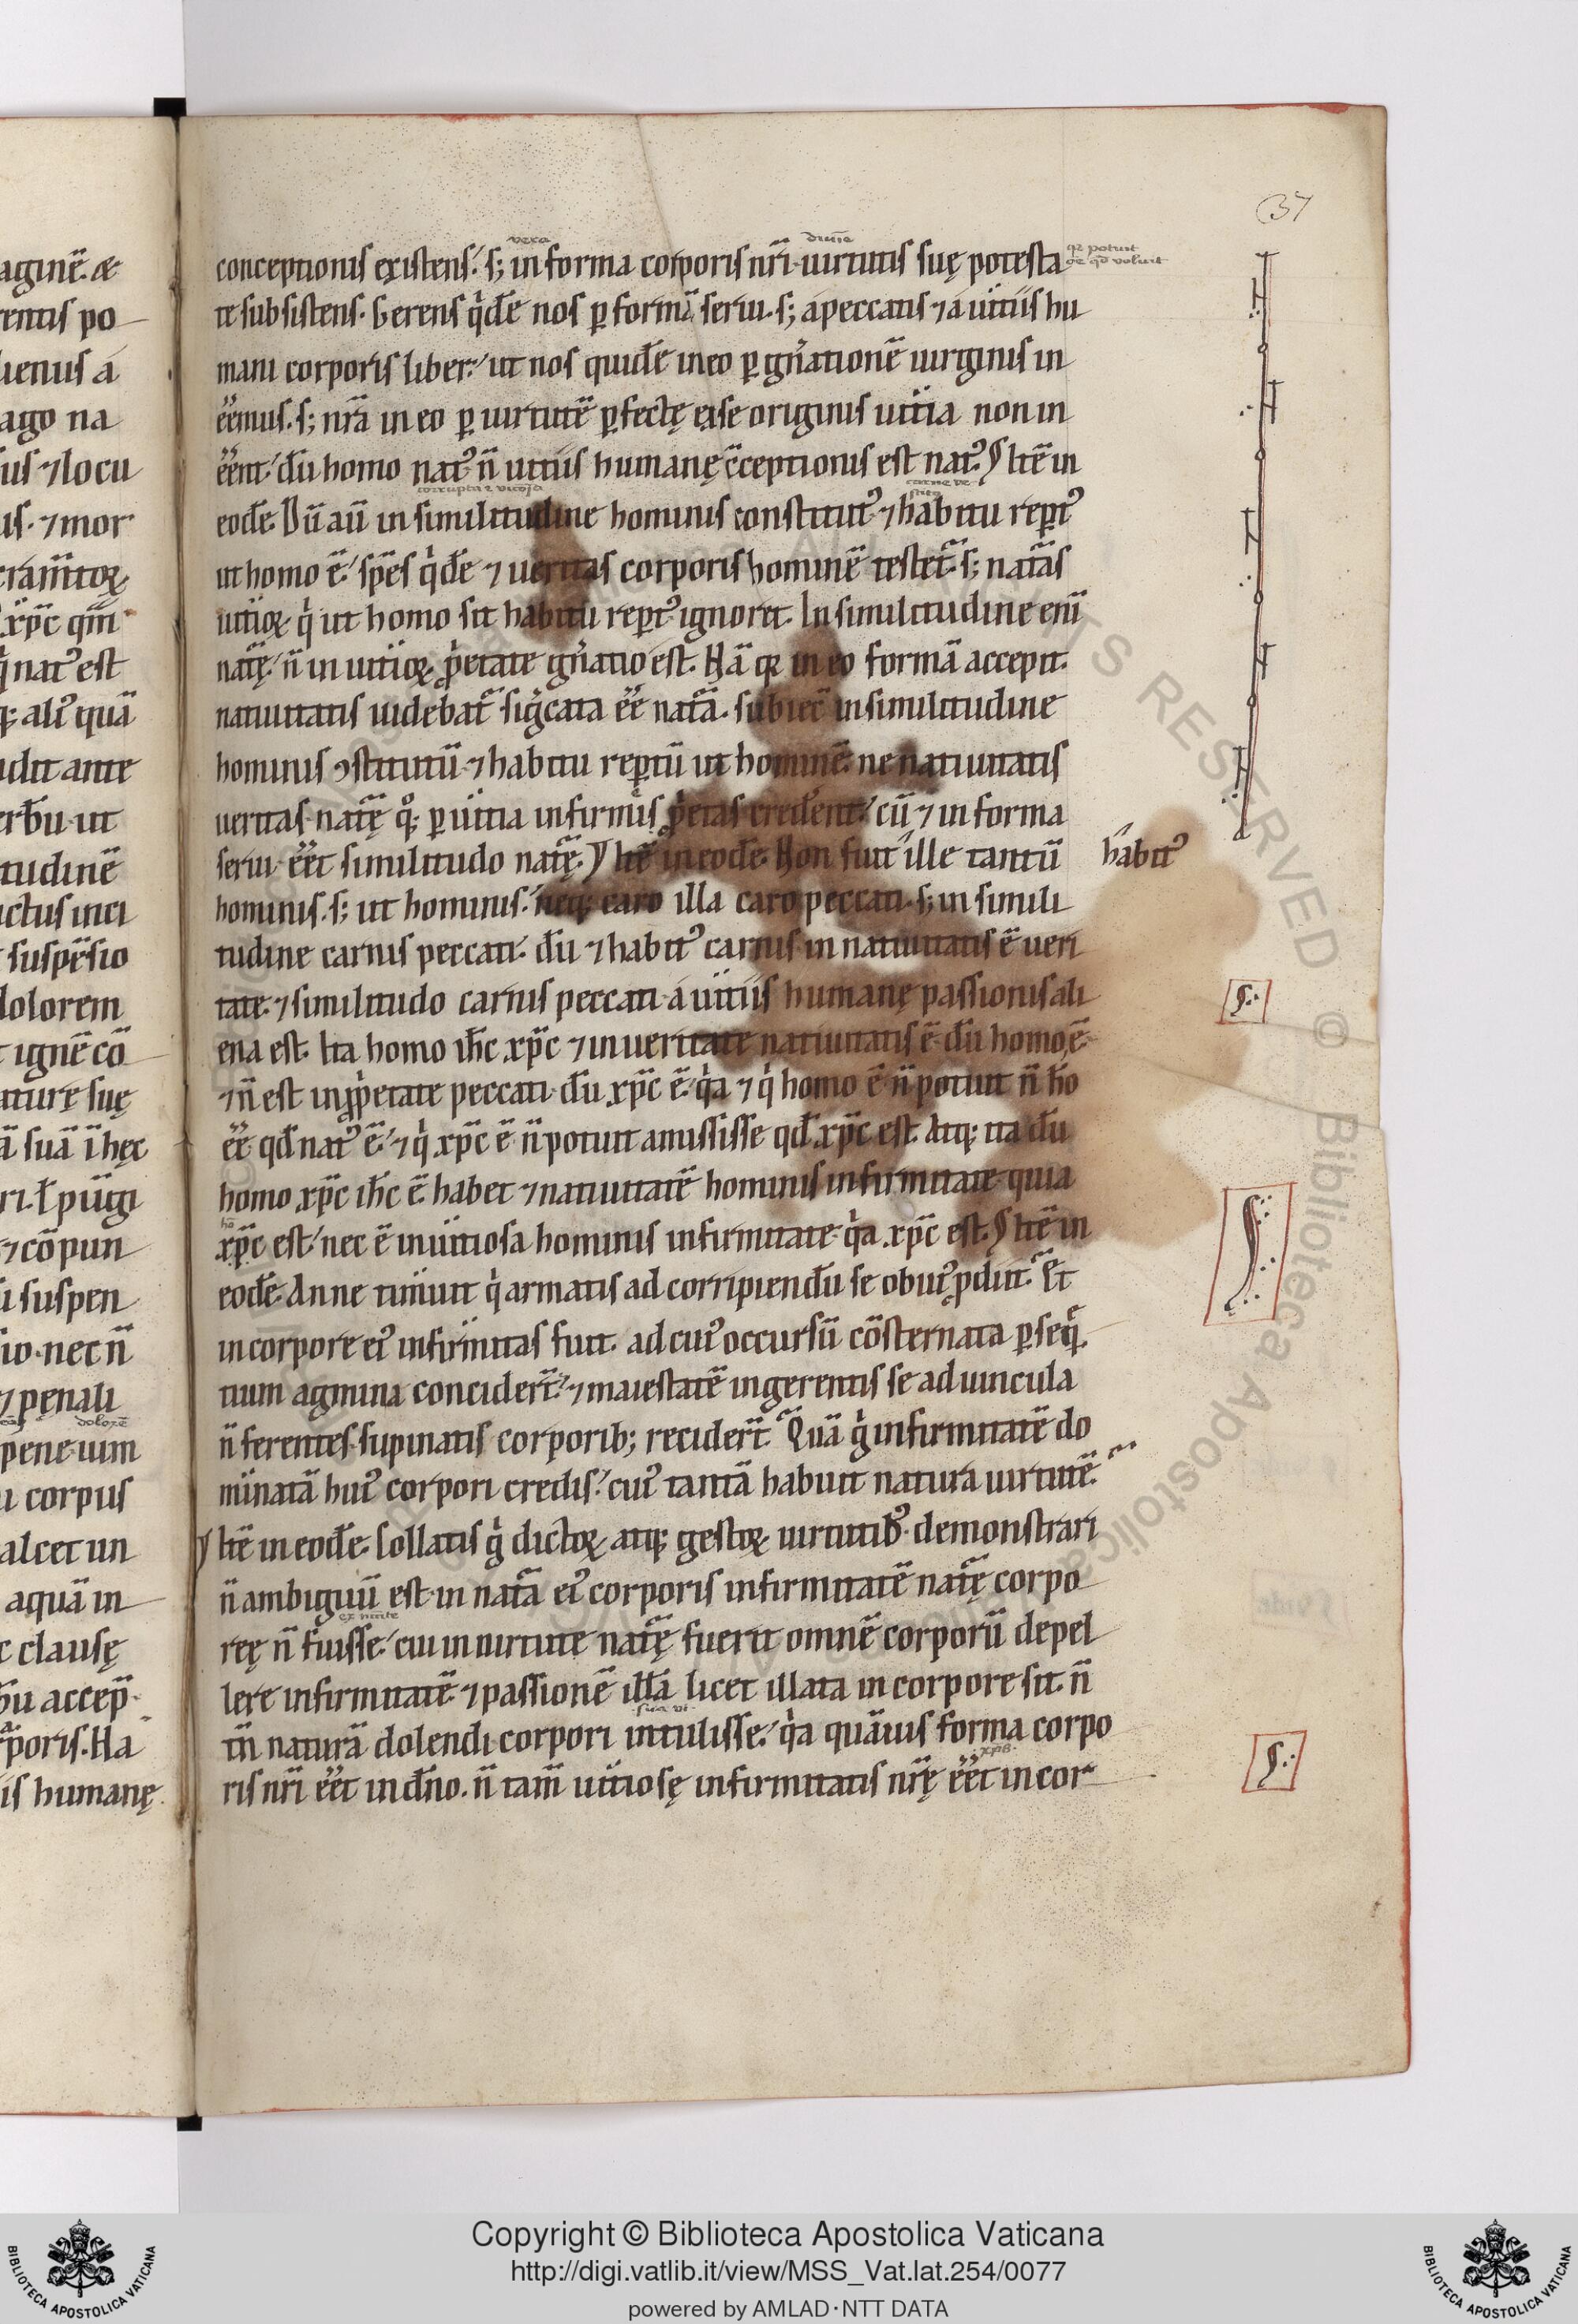 37
conceptionis existens. s; in forma corporis nr̄i. uirtutis suę potesta
te subsistens. Gerens q̇dē nos ꝑ formā serui. s; a peccatis ⁊ a uitiis hu
mani corporis liber. ut nos quidē in eo ꝑ gn̄ationē uirginis in
eēmus. s; nr̄a in eo ꝑ uirtutē ꝑfectę ex se originis uitia non in
eēnt. dū homo natꝰ n̄ uitiis humanę c̄ceptionis est natꝰ. Itē in
eodē. Dū aū in similitudine hominis constitutꝰ ⁊ habitu reꝑtꝰ
ut homo ē. sp̄es q̇dē ⁊ ueritas corporis hominē testet̄. s; nat̄as
uitioꝝ q̇ ut homo sit habitu reꝑtꝰ ignoret. In similitudine eni
nat̄ę. n̄ in uitioꝝ ꝓp̄etate gn̄atio est. Nā qꝛ in eo formā accepit.
natiuitatis uidebat̄ siḡcata eē nat̄a. subiec̄ in similitudine
hominis ꝯstitutū ⁊ habitu reꝑtū ut hominē. ne natiuitatis
ueritas nat̄ę qͦꝫ ꝑ uitia infirmis ꝓp̄etas credēnt. cū ⁊ in forma
serui eēt similitudo nat̄ę. Itē in eodē. Non fuit ille tantū habitꝰ
hominis. s; ut hominis. neqꝫ caro illa caro peccati. s; in simili
tudine carnis peccati. dū ⁊ habitꝰ carnis in natiuitatis ē ueri
tate. ⁊ similitudo carnis peccati a uitiis humanę passionis ali
ena est. Ita homo ih̄c xp̄c ⁊ in ueritate natiuitatis ē dū homo ē.
⁊ n̄ est in ꝓp̄etate peccati dū xp̄c ē. q̇a ⁊ q̇ homo ē n̄ potuit n̄ hō
eē qd̄ natꝰ ē. ⁊ q̇ xp̄c ē n̄ potuit amississe qd̄ xp̄c est. Atqꝫ ita dū
homo xp̄c ih̄c ē. habet ⁊ natiuitatē hominis infirmitate quia
hō
xp̄c est. nec ē in uitiosa hominis infirmitate q̇a xp̄c est. Itē in
eodē. Anne timuit q̇ armatis ad corripiendū se obuiꝰ ꝓdiit. Et
in corpore eiꝰ infirmitas fuit. ad cuiꝰ occursū cōsternata ꝑseq̄
tium agmina conciderr̄. ⁊ maiestatē ingerentis se ad uincula
n̄ ferentes supinatis corporib; reciderr̄. Quā ġ infirmitatē do
minatā huiꝰ corpori credis. cuiꝰ tantā habuit natura uirtutē.
Itē in eodē. Sollatis ġ dictoꝝ atqꝫ gestoꝝ uirtutibꝰ. demonstrari
n̄ ambiguū est. in nat̄a eiꝰ corporis infirmitatē nat̄ę corpo
reę n̄ fuisse. cui in uirtute nat̄ę fuerit omnē corporū depel
lere infirmitatē. ⁊ passionē illā licet illata in corpore sit. n̄
tn̄ naturā dolendi corpori intulisse. q̇a quāuis forma corpo
ris nr̄i eēt in dn̄o. n̄ tam̄ uitiosę infirmitatis nr̄ę eēt in cor
Copyright © Biblioteca Apostolica Vaticana
http://digi.vatlib.it/view/MSS_Vat.lat.254/0077
powered by AMLAD·NTT DATA